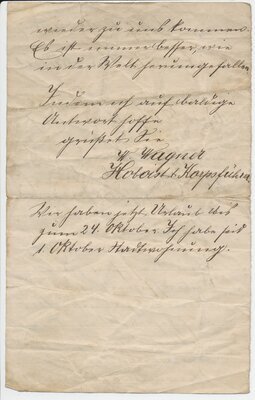 wieder zu uns kommen.
Es ist immer besser wie
in der Welt herumgefallen
Indem ich auf baldige
Antwort hoffe
grüßet Sie
W. Wagner
Hoboist u. Korpsführer
Wir haben jetzt Urlaub bis
zum 24. Oktober Ich habe seit
1. Oktober Stadtwohnung.